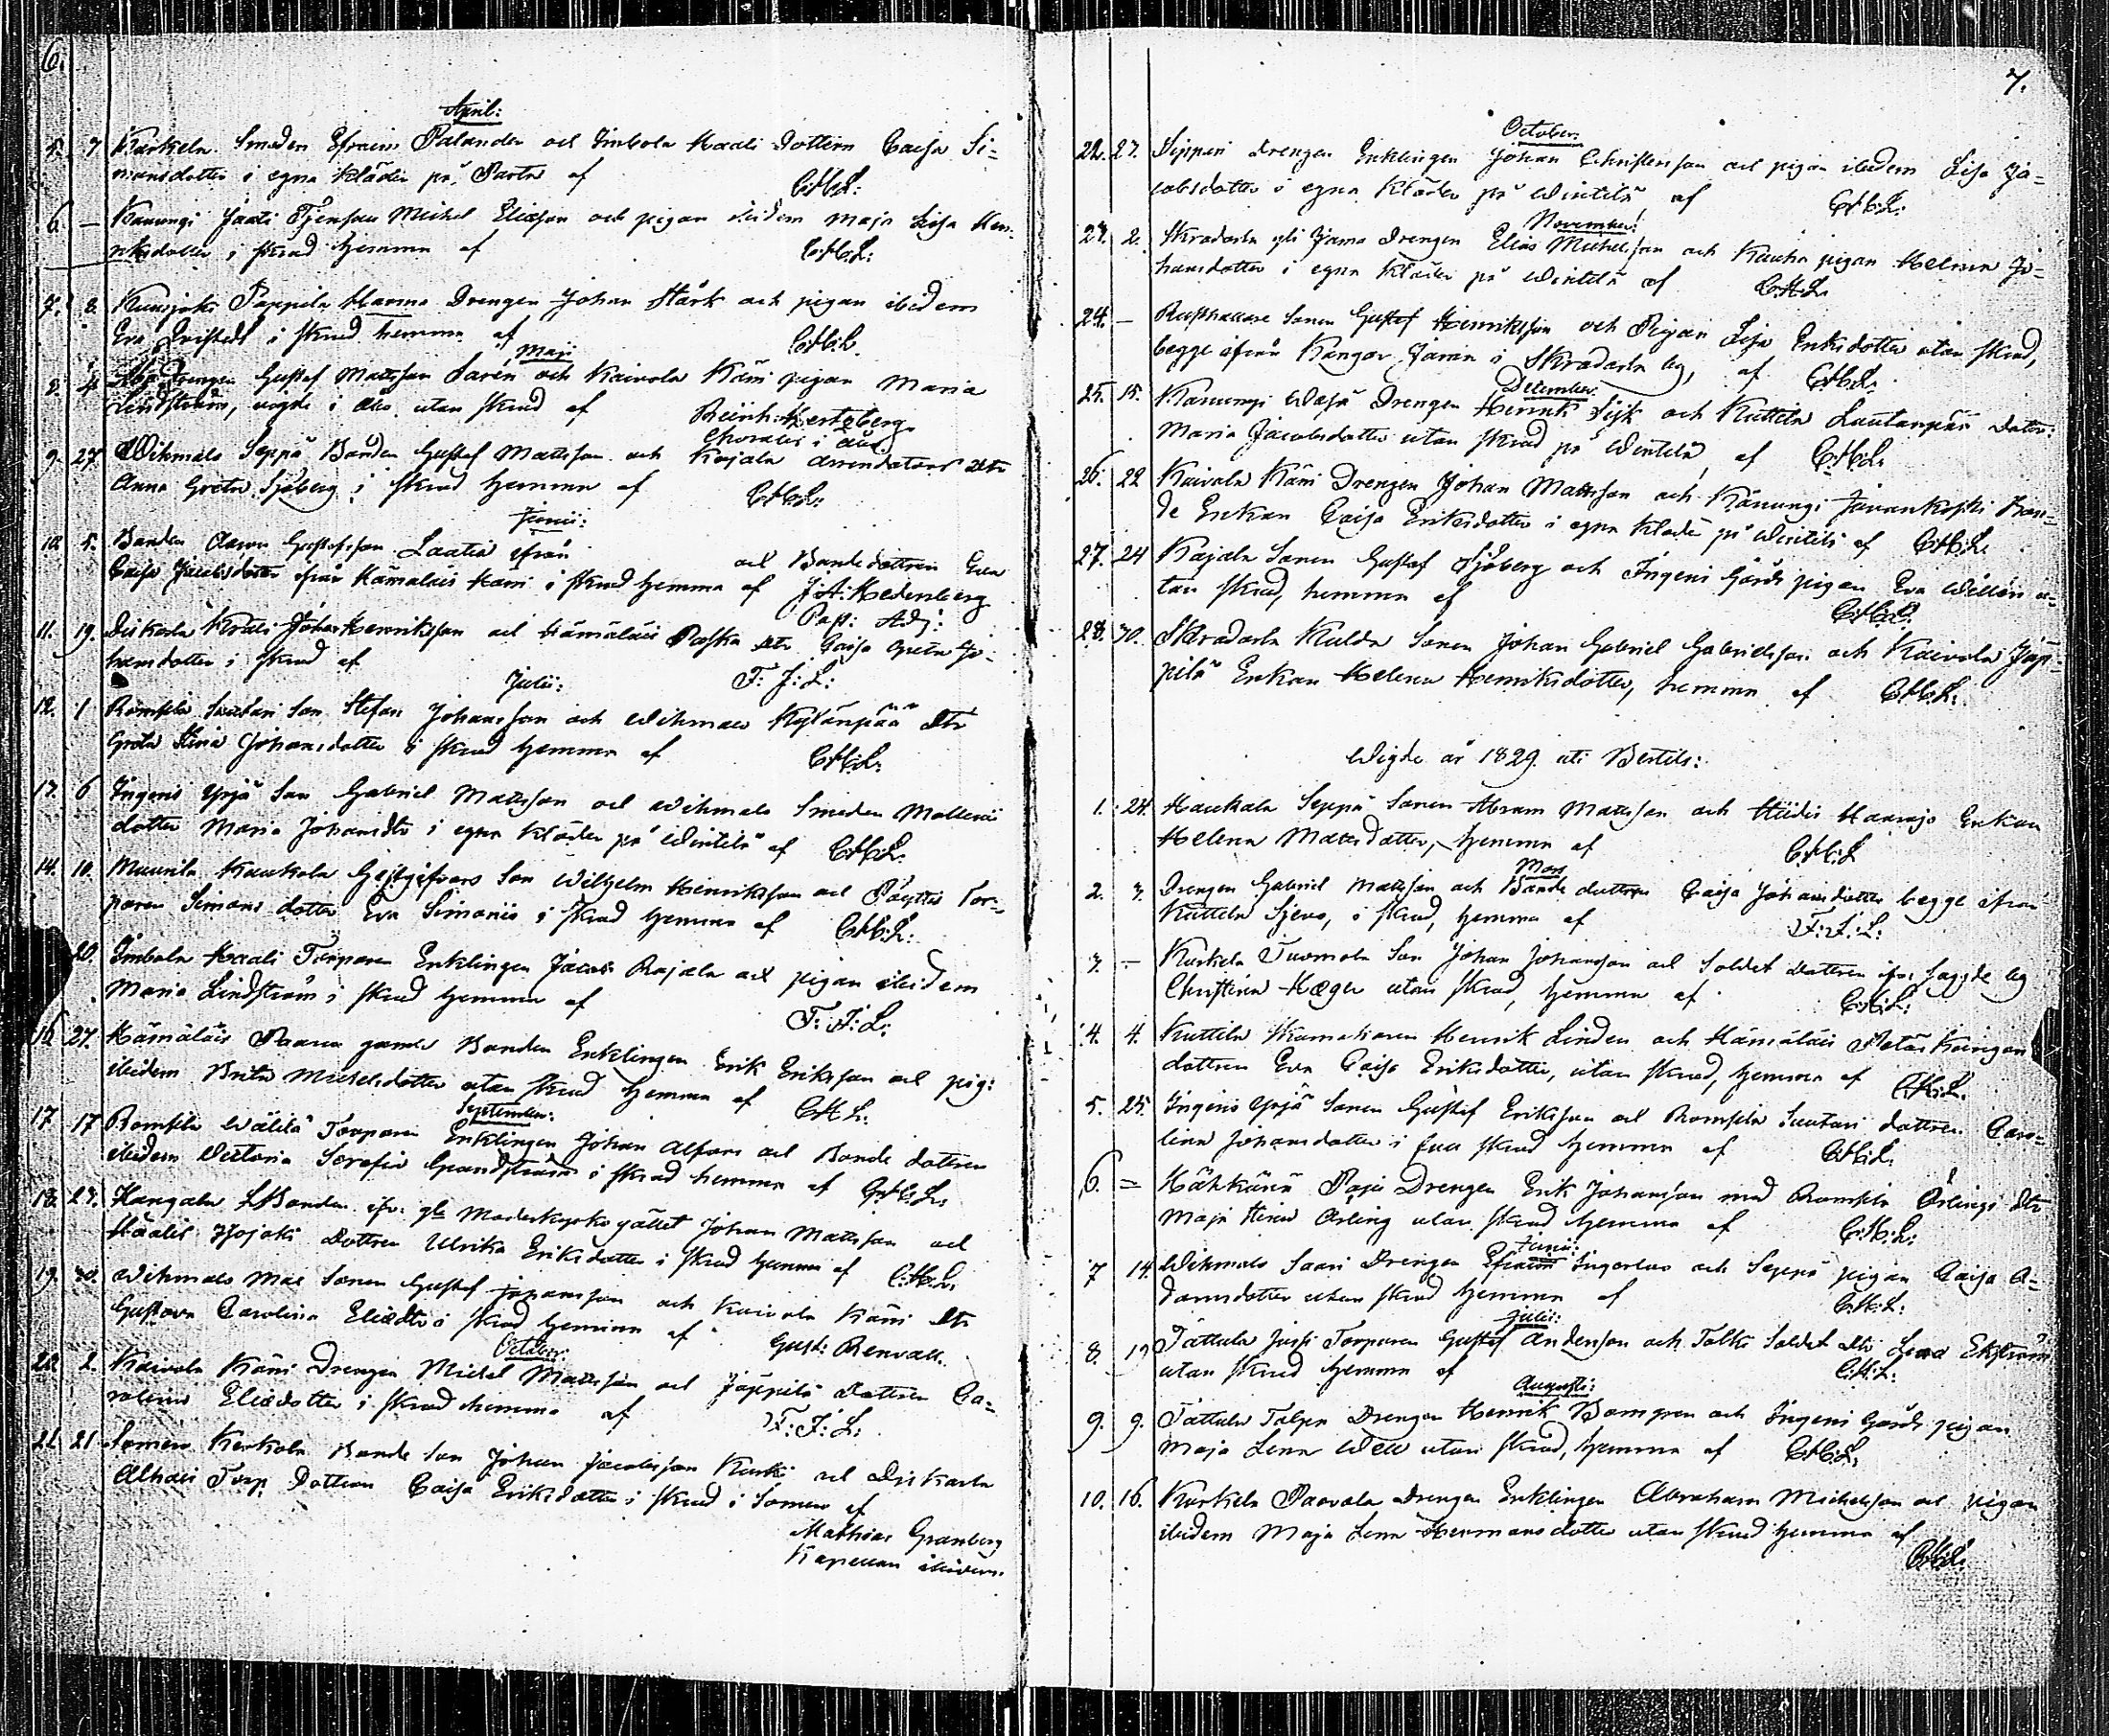 6.
April:
5. 7 Karkela Smeden Efraim Palander och Imbola Kaali dottern Caisa Si=
monsdotter i egna kläder på af C.H.L:
6. — Kanungi Jaati Michel Eliæson och pigan ibidem Maja Lisa Hen-
riksdotter i skrud hemma af C.H.L:
7. 8. Pappila Drengen Johan Stark och pigan ibidem
Eva i skrud hemma af C.H.L.
Maji
8. 4 Drengen Gustaf Mattsson Saren och Kaivola Käni pigan Maria
Lindström, vigde i Åbo utan skrud af Reinh: Hertzberg
i Åbo
9. 27. Wihmalo Seppä Bonden Gustaf Mattsson och Kajala arrendators dtr
Anna Greta Sjöberg i skrud hemma af C.H.L:
Junii:
10. 5. Bonden Gustafsson Laatia ifrån och Bondedottren Eva
Caisa Jacobsdotter ifrån Hämäläis i skrud hemma af J.A. Hedenberg
Past: Adj:
11. 19. Krali Johan Henriksson och Hämäläis Paska dtr Caisa Greta Jo-
hansdotter i skrud af F: J: L:
Julii:
12. 1 Rompila Suutari Son Stefan Johansson och Wihmalo Kylänpää dtr
Greta Stina Johansdotter i skrud hemma af C.H.L:
13. 6 Ingeris Yrjä Son Gabriel Mattsson och Wihmalo Smeden
dotter Maria Johansdtr i egna kläder på Wintilä af C.H.L.
14. 10. Muurila Kaukola Gästgifvars Son Wilhelm Henriksson och
paren Simons dotter Eva i skrud hemma af C.H.L:
20. Imbola Kaali Torparen Enklingen Jacob Rajala och pigan ibidem
Maria Lindström i skrud hemma af F: J: L:
16 27. Hämäläis gamla Bonden Enklingen Erik Eriksson och pig:
ibidem Brita Michelsdotter utan skrud hemma af C.H.L:
September:
17 17 Rompila Wälilä Torparen Enklingen Johan och Bonde dottren
ibidem Victoria Serafia i skrud hemma af C.H.L:
18. 23. Kangala Bonden ifr: Johan Mattsson och
Häälis Dottren Ulrika Eriksdotter i skrud hemma af C.H.L.
19. 30. Wihmalo Mäe Sonen Gustaf Johansson och Kaivola Käni dtr
Gustava Carolina Eliædtr i skrud hemma af Gust: Renvall.
October:
20. 2. Kaivola Käni Drengen Michel Mattsson och Jäppilä dottren Ca=
rolina Eliædotter i skrud hemma af F: J: L:
21. 21 Somero Kerkola Bonde Son Johan Jacobsson och
Torp. Dottren Caisa Eriksdotter i skrud i Somero af
Mathias Granberg
Kapellan ibidem.
7.
October:
22. 27. Sippari Drengen Enklingen Johan Christersson och pigan ibidem Lisa Ja=
cobsdotter i egna kläder på Wintilä af C.H.L:
November:
23. 2. Skradarla Drengen Elias Michelsson och pigan Helena Jo=
hansdotter i egna kläder på Wintilä af C.H.L.
24. — Rusthållare Sonen Gustaf Henriksson och Pigan Lisa Eriksdotter utan skrud,
begge ifrån Kangar Janni i Skradarla by, af C.H.L.
December:
25. 15. Kanungi Drengen Henrik Sijk och Kuttila dotter
Maria Jacobsdotter utan skrud på Wintilä af C.H.L.
26. 22 Kaivola Käni Drengen Johan Mattsson och Kanungi
de Enkan Caisa Eriksdotter i egna kläder på Wintilä af C.H.L.
27. 24 Kajala Sonen Gustaf Sjöberg och Ingeris Gårds pigan Eva u=
tan skrud, hemma af C.H.L.
28. 30. Skradarla Kulda Sonen Johan Gabriel Gabrielsson och Kaivola Jäp-
pilä Enkan Helena Henriksdotter, hemma af C.H.L.
Wigde år 1829. uti Bertils:
1. 24. Haukala Seppä Sonen Abram Mattsson och Enkan
Helena Mattsdotter, hemma af C.H.L
Mars
2. 3. Drengen Gabriel Mattsson och Bonde dottren Caisa Johansdotter begge ifrån
Kuttila i skrud, hemma af F: J: L:
3. — Karkela Tuomola Son Johan Johansson och Soldat dottren ifr. by
Christina Hæger utan skrud, hemma af C.H.L:
4. 4. Kuttila Henrik Linden och Hämäläis
dottren Eva Caisa Eriksdotter, utan skrud, hemma af C.H.L.
5. 25. Ingeris Yrjä Sonen Gustaf Eriksson och Rompila Suutari dottren Caro=
lina Johansdotter i skrud hemma af C.H.L.
6. = Häkkärä Drengen Erik Johansson med Rompila dtr
Maja Stina utan skrud hemma af C.H.L:
Junii:
7 14 Wihmalo Saari Drengen Efraim och Seppä pigan Caisa A=
damsdotter utan skrud hemma af C.H.L:
Julii:
8. Tättula Jussi Torparen Gustaf Andersson och Soldat dtr Lena Ekström
utan skrud hemma af C.H.L.
Augusti:
9. 9. Tättula Talpa Drengen Henrik och Ingeris Gårds pigan
Maja Lena utan skrud, hemma af C.H.L.
10. 16. Karkela Paavola Drengen Enklingen Abraham Michelsson och pigan
ibidem Maja Lena Hermansdotter utan skrud hemma af
C.H.L.